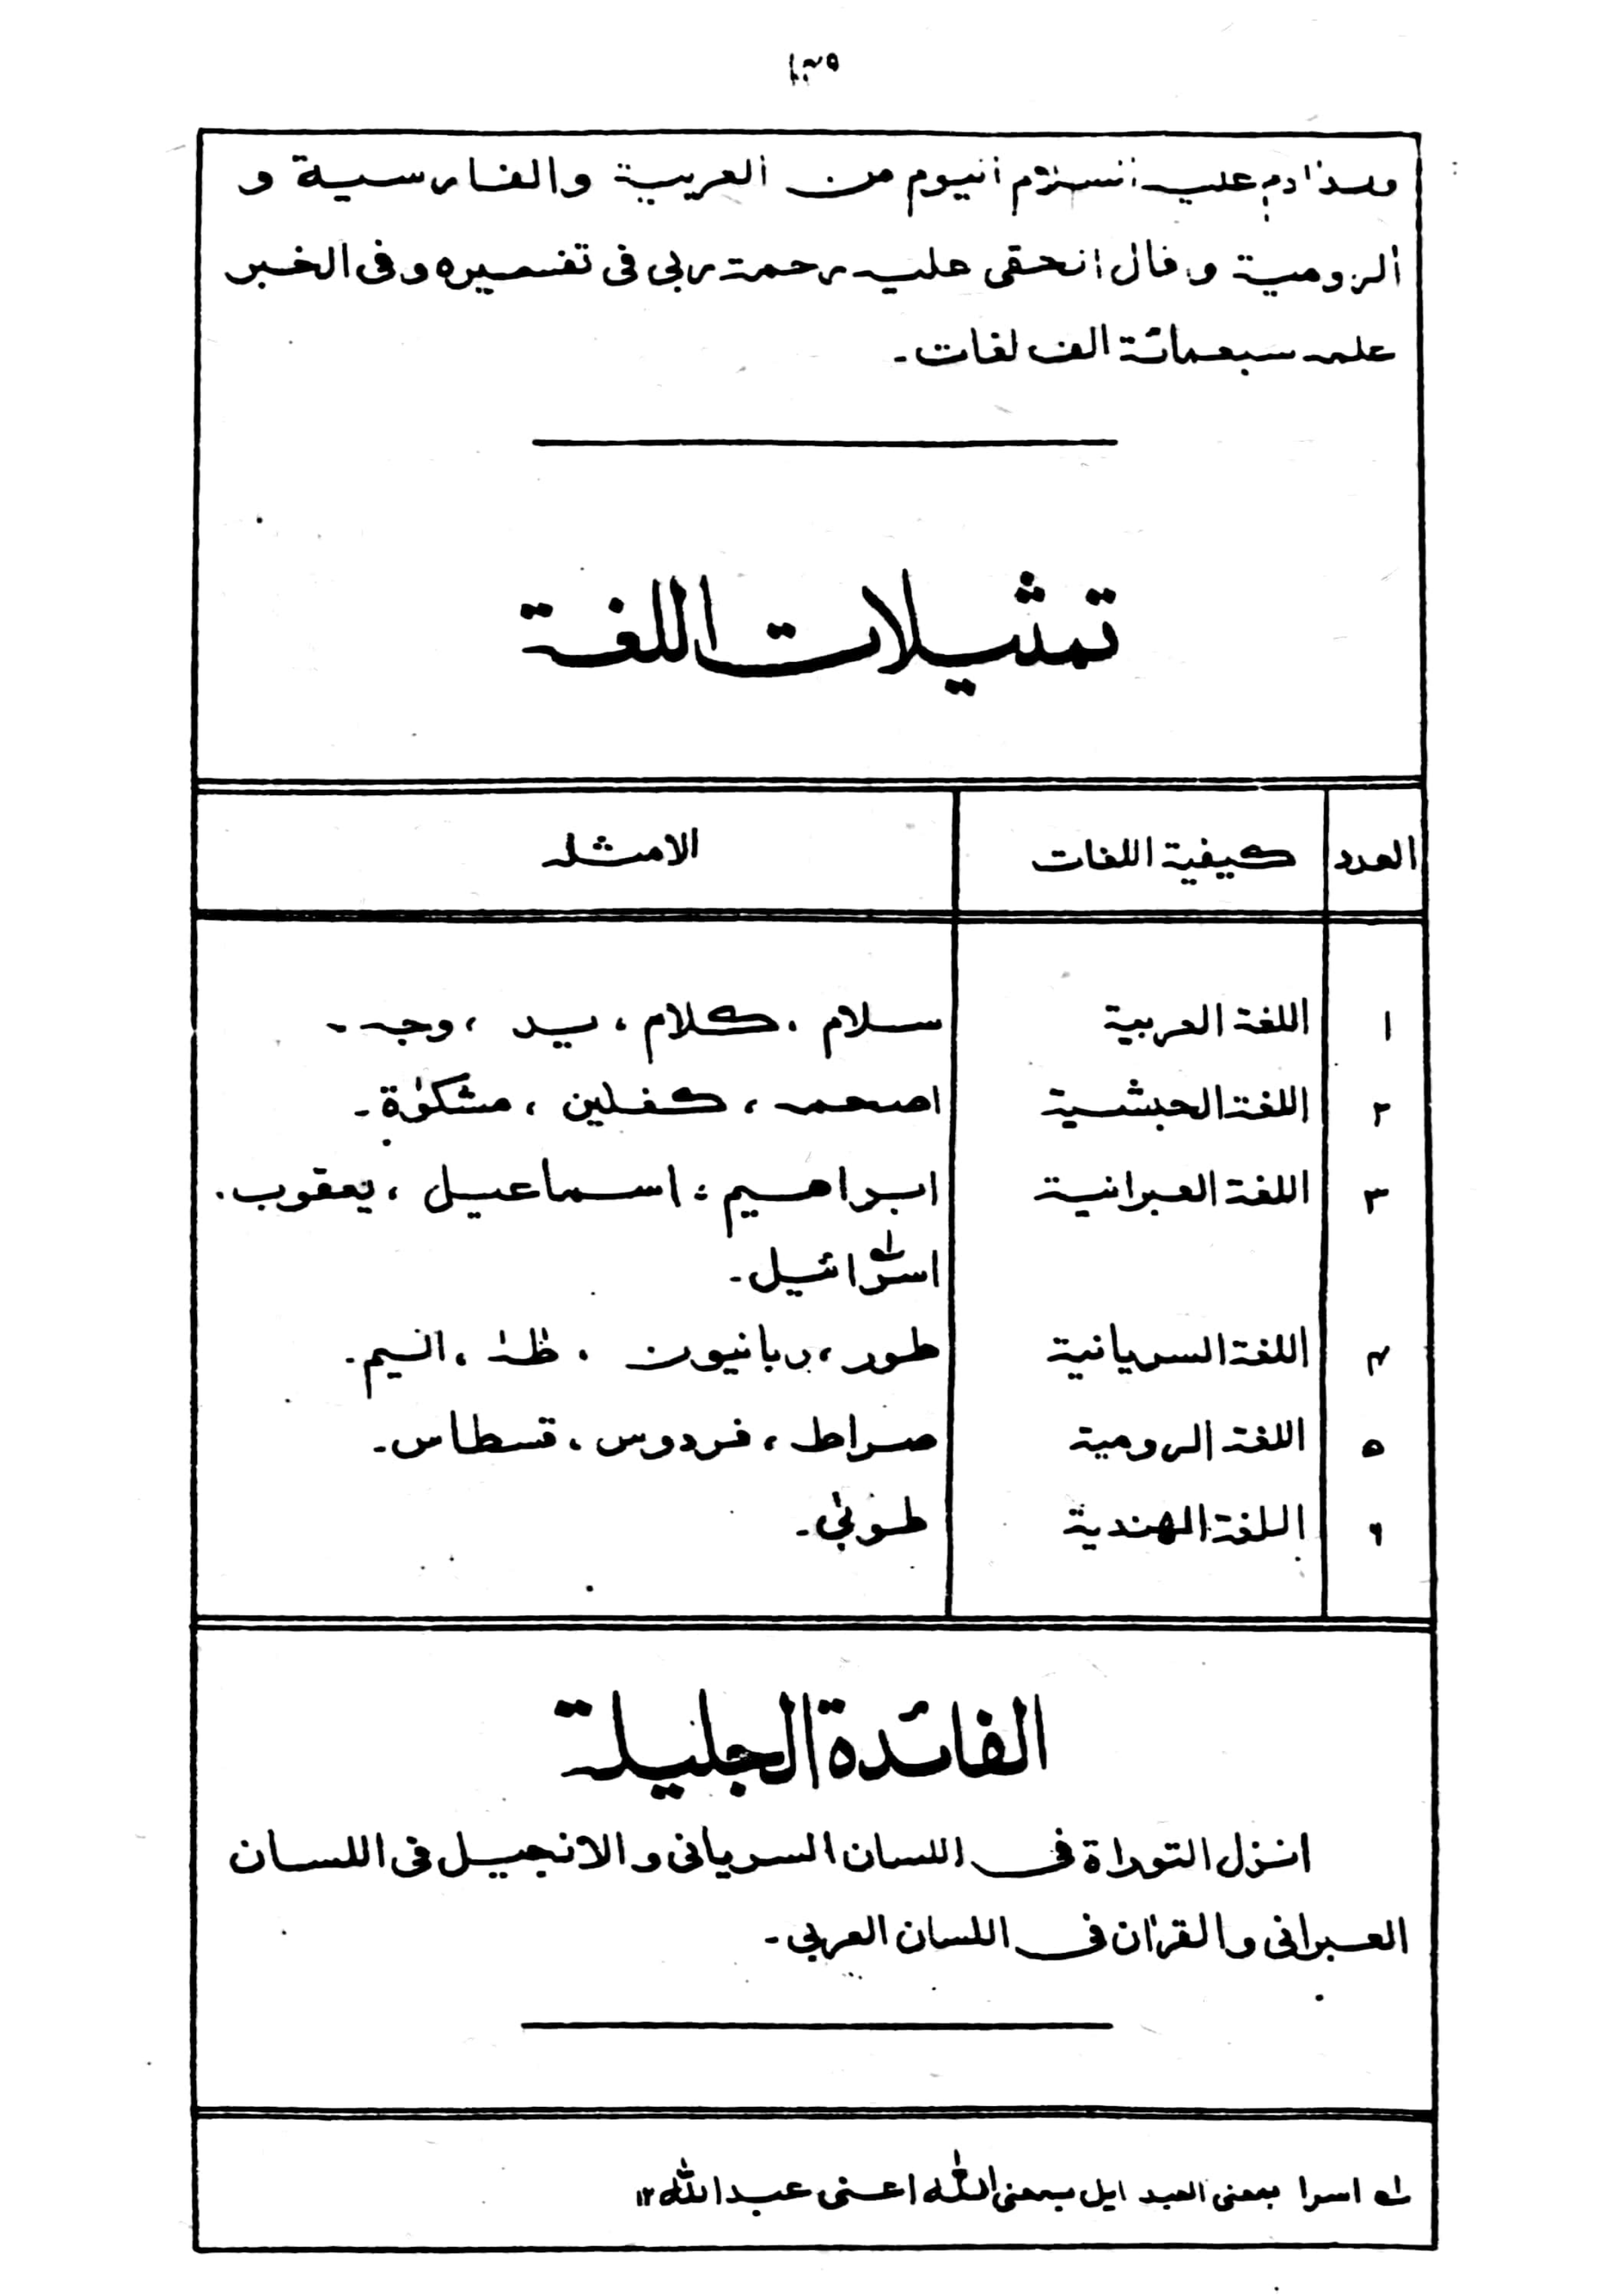 ولد آدم عليه السلام اليوم من العربية والفارسية و
الرومية و قال الحقى عليه رحمة ربى فى تفسيره وفى الخبر
علمه سبعمائة الف لغات۔
تمثيلات اللغة
العدد كيفية اللغات الامثله
١ اللغة العربية سلام ، كلام ، يد ، وجه ۔
٢ اللغة الحبشية اصحمه ، كفلين ، مشكوٰة ۔
٣ اللغة العبرانية ابراهيم ، اسماعيل ، يعقوب ،
اسرائيل ۔
۴ اللغة السريانية طور ، ربانيون ، طٰهٰ ، اليم ۔
۵ اللغة الرومية صراط ، فردوس ، قسطاس ۔
۶ اللغة الهندية طوبىٰ ۔
الفائدة الجليلة
انزل التوراة فى اللسان السريانى و الانجيل فى اللسان
العبرانى والقرٰان فى اللسان العربى ۔
لـه اسرا بمعنى العبد ايل بمعنى الله اعنى عبدالله ١٢